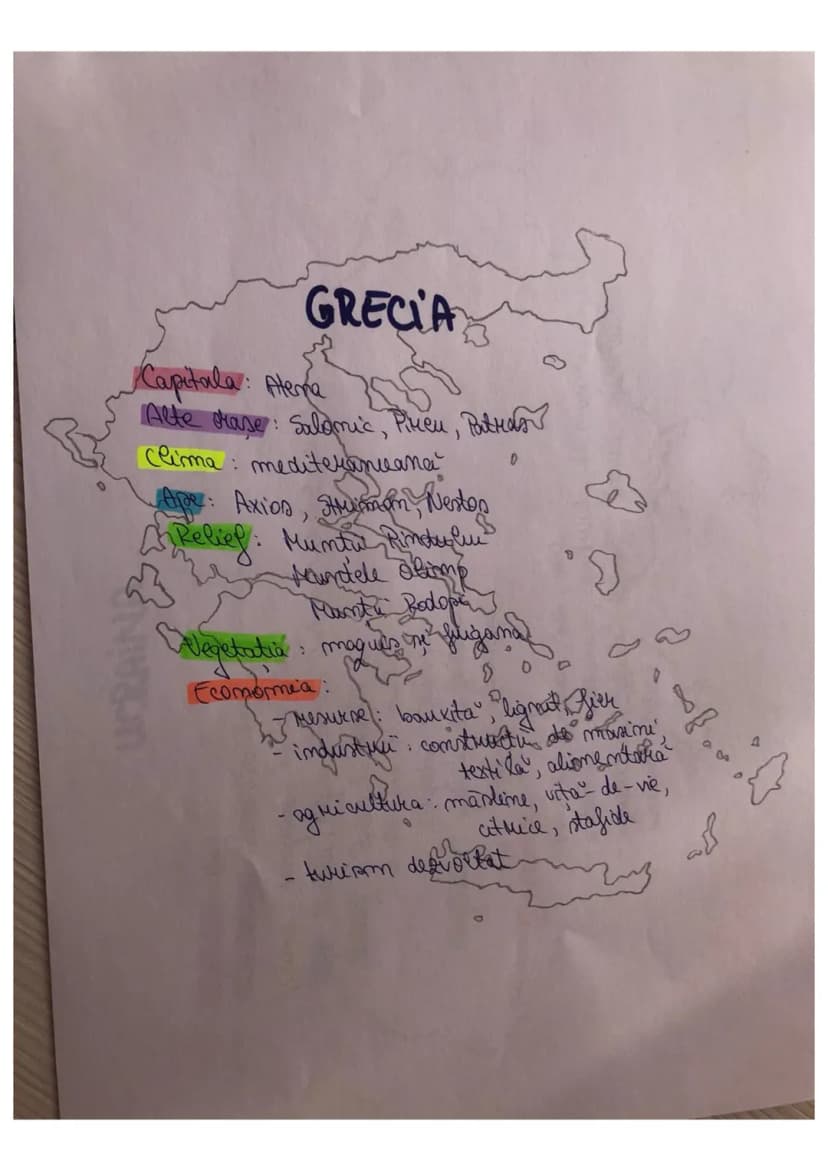 GRECIA
Capitala: Atena
Alte orașe: Salonic, Pireu, Patras
Clima: mediteraneană
Ape: Axios, Strimon, Nestos
Relief: Munții Pindului
Muntele Olimp
Munții Rodopi
Vegetația: maquis și frigana
Economia:
- resurse: bauxită, lignit, fier
- industrii: construcții de mașini,
textilă, alimentară
- agricultura: măsline, viță-de-vie,
citrice, stafide
- turism dezvoltat
UCRAINA